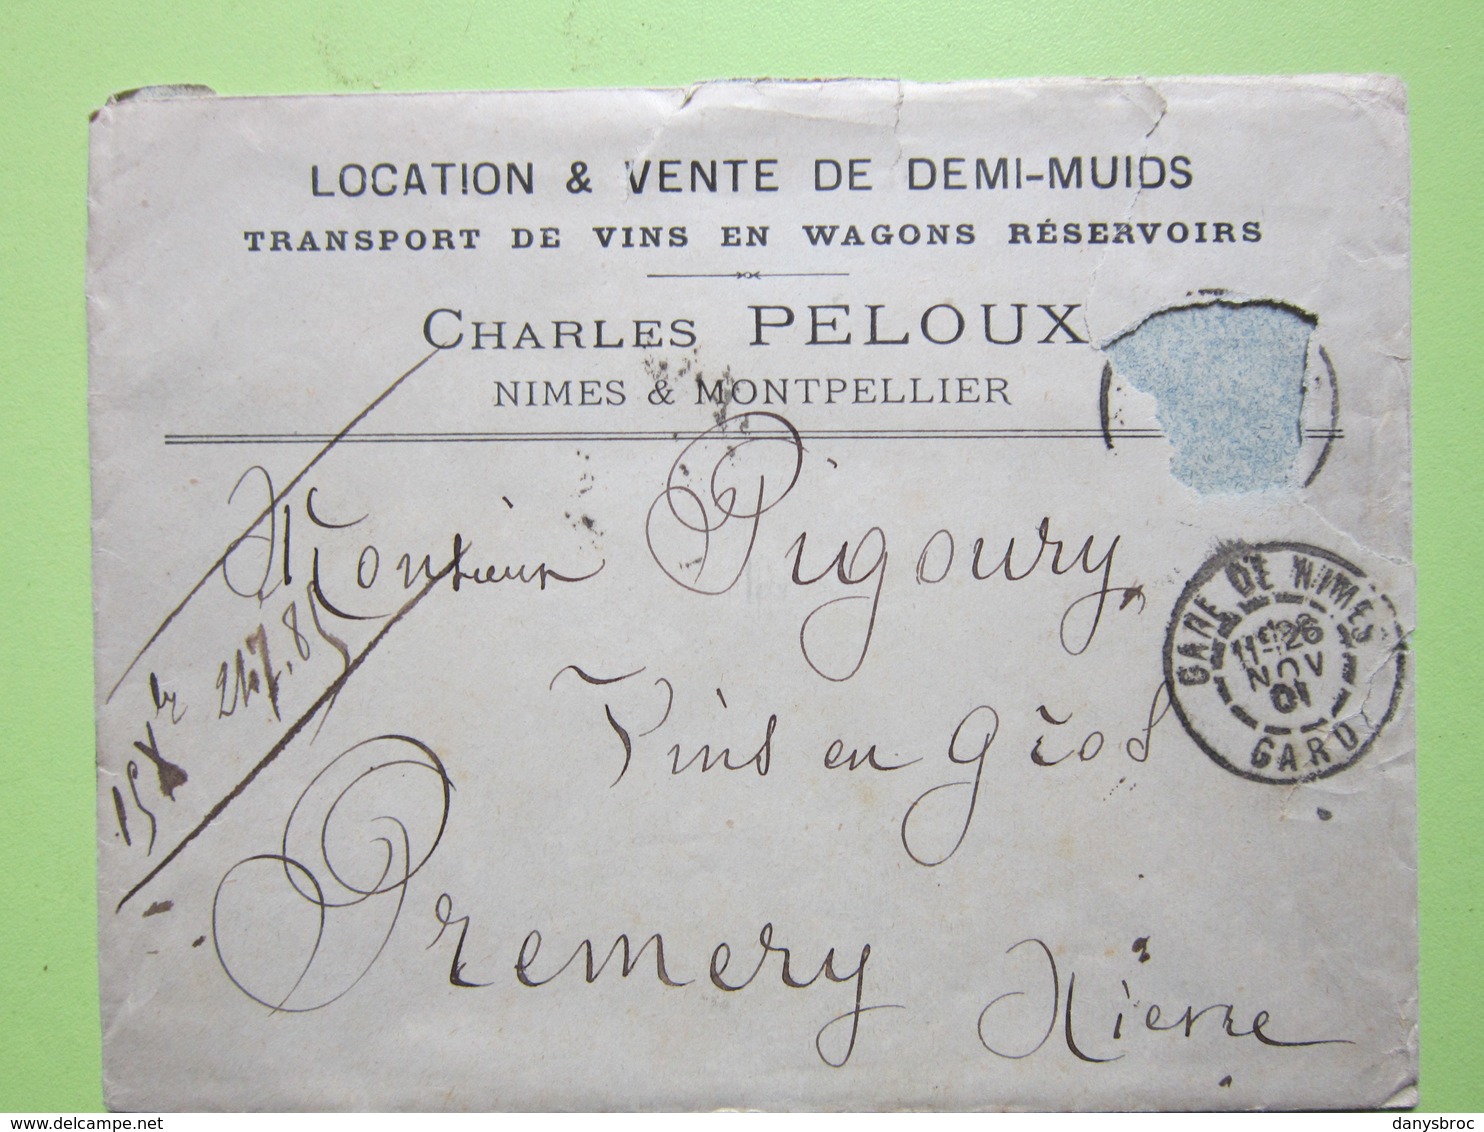 LOCATION & VENTE DE DEMI-MUIDS
TRANSPORT DE VINS EN WAGONS RÉSERVOIRS
CHARLES PELOUX
NIMES & MONTPELLIER
Monsieur Pigoury
Vins en Gros
Premery
Nièvre
15 Xbre 247.85
GARE DE NIMES
26
NOV
01
GARD
delcampe.net
danysbroc